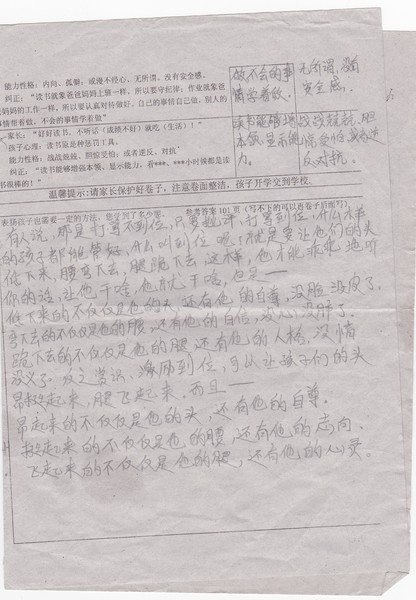 能力性格：内向、孤僻；或漫不经心、无所谓，没有安全感。
纠正：“读书就象爸爸妈妈上班一样，所以要守纪律；作业就象爸
妈妈的工作一样，所以要认真对待做好。自己的事情自己做，别人的
事情帮着做，不会的事情学着做”
做不会的事
情学着做。
无所谓，没有
安全感。
家长：“好好读书，不听话（成绩不好）就吃（生活）！”
孩子心理：读书原是种惩罚工具。
能力性格：战战兢兢，胆惊受怕；或者逆反、对执
纠正：“读书能够增强本领，显示能力，看***、***小时候都是读
书很棒的！”
本领，显示能
力。
反对抗。
温馨提示：请家长保护好卷子，注意卷面整洁，孩子开学交到学校。
表扬孩子也需要一定的方法，您学到了多少呢。 参考答案101页（写不下的可以再卷子后面写）
有人说，那是打骂不到位，只要
的孩子都能管好，什么叫到位呢？就是要让他们的头
低下来，腰弯下去，腿跪下去，这样，他才能乖乖地听
你的话，让他干啥，他就干啥，也是——
低下来的不仅仅是他的头，还有他的自尊，没脸没皮了。
弯下去的不仅仅是他的腰，还有他的自信，没心没肺了。
跪下去的不仅仅是他的腿，还有他的人格，没情
没义了。反之赏识、激励到位，可以让孩子们的头
昂起来，腿飞起来，而且——
昂起来的不仅仅是他的头，还有他的自尊。
挺起来的不仅仅是他的腰，还有他的志向。
飞起来的不仅仅是他的腿，还有他的心灵。